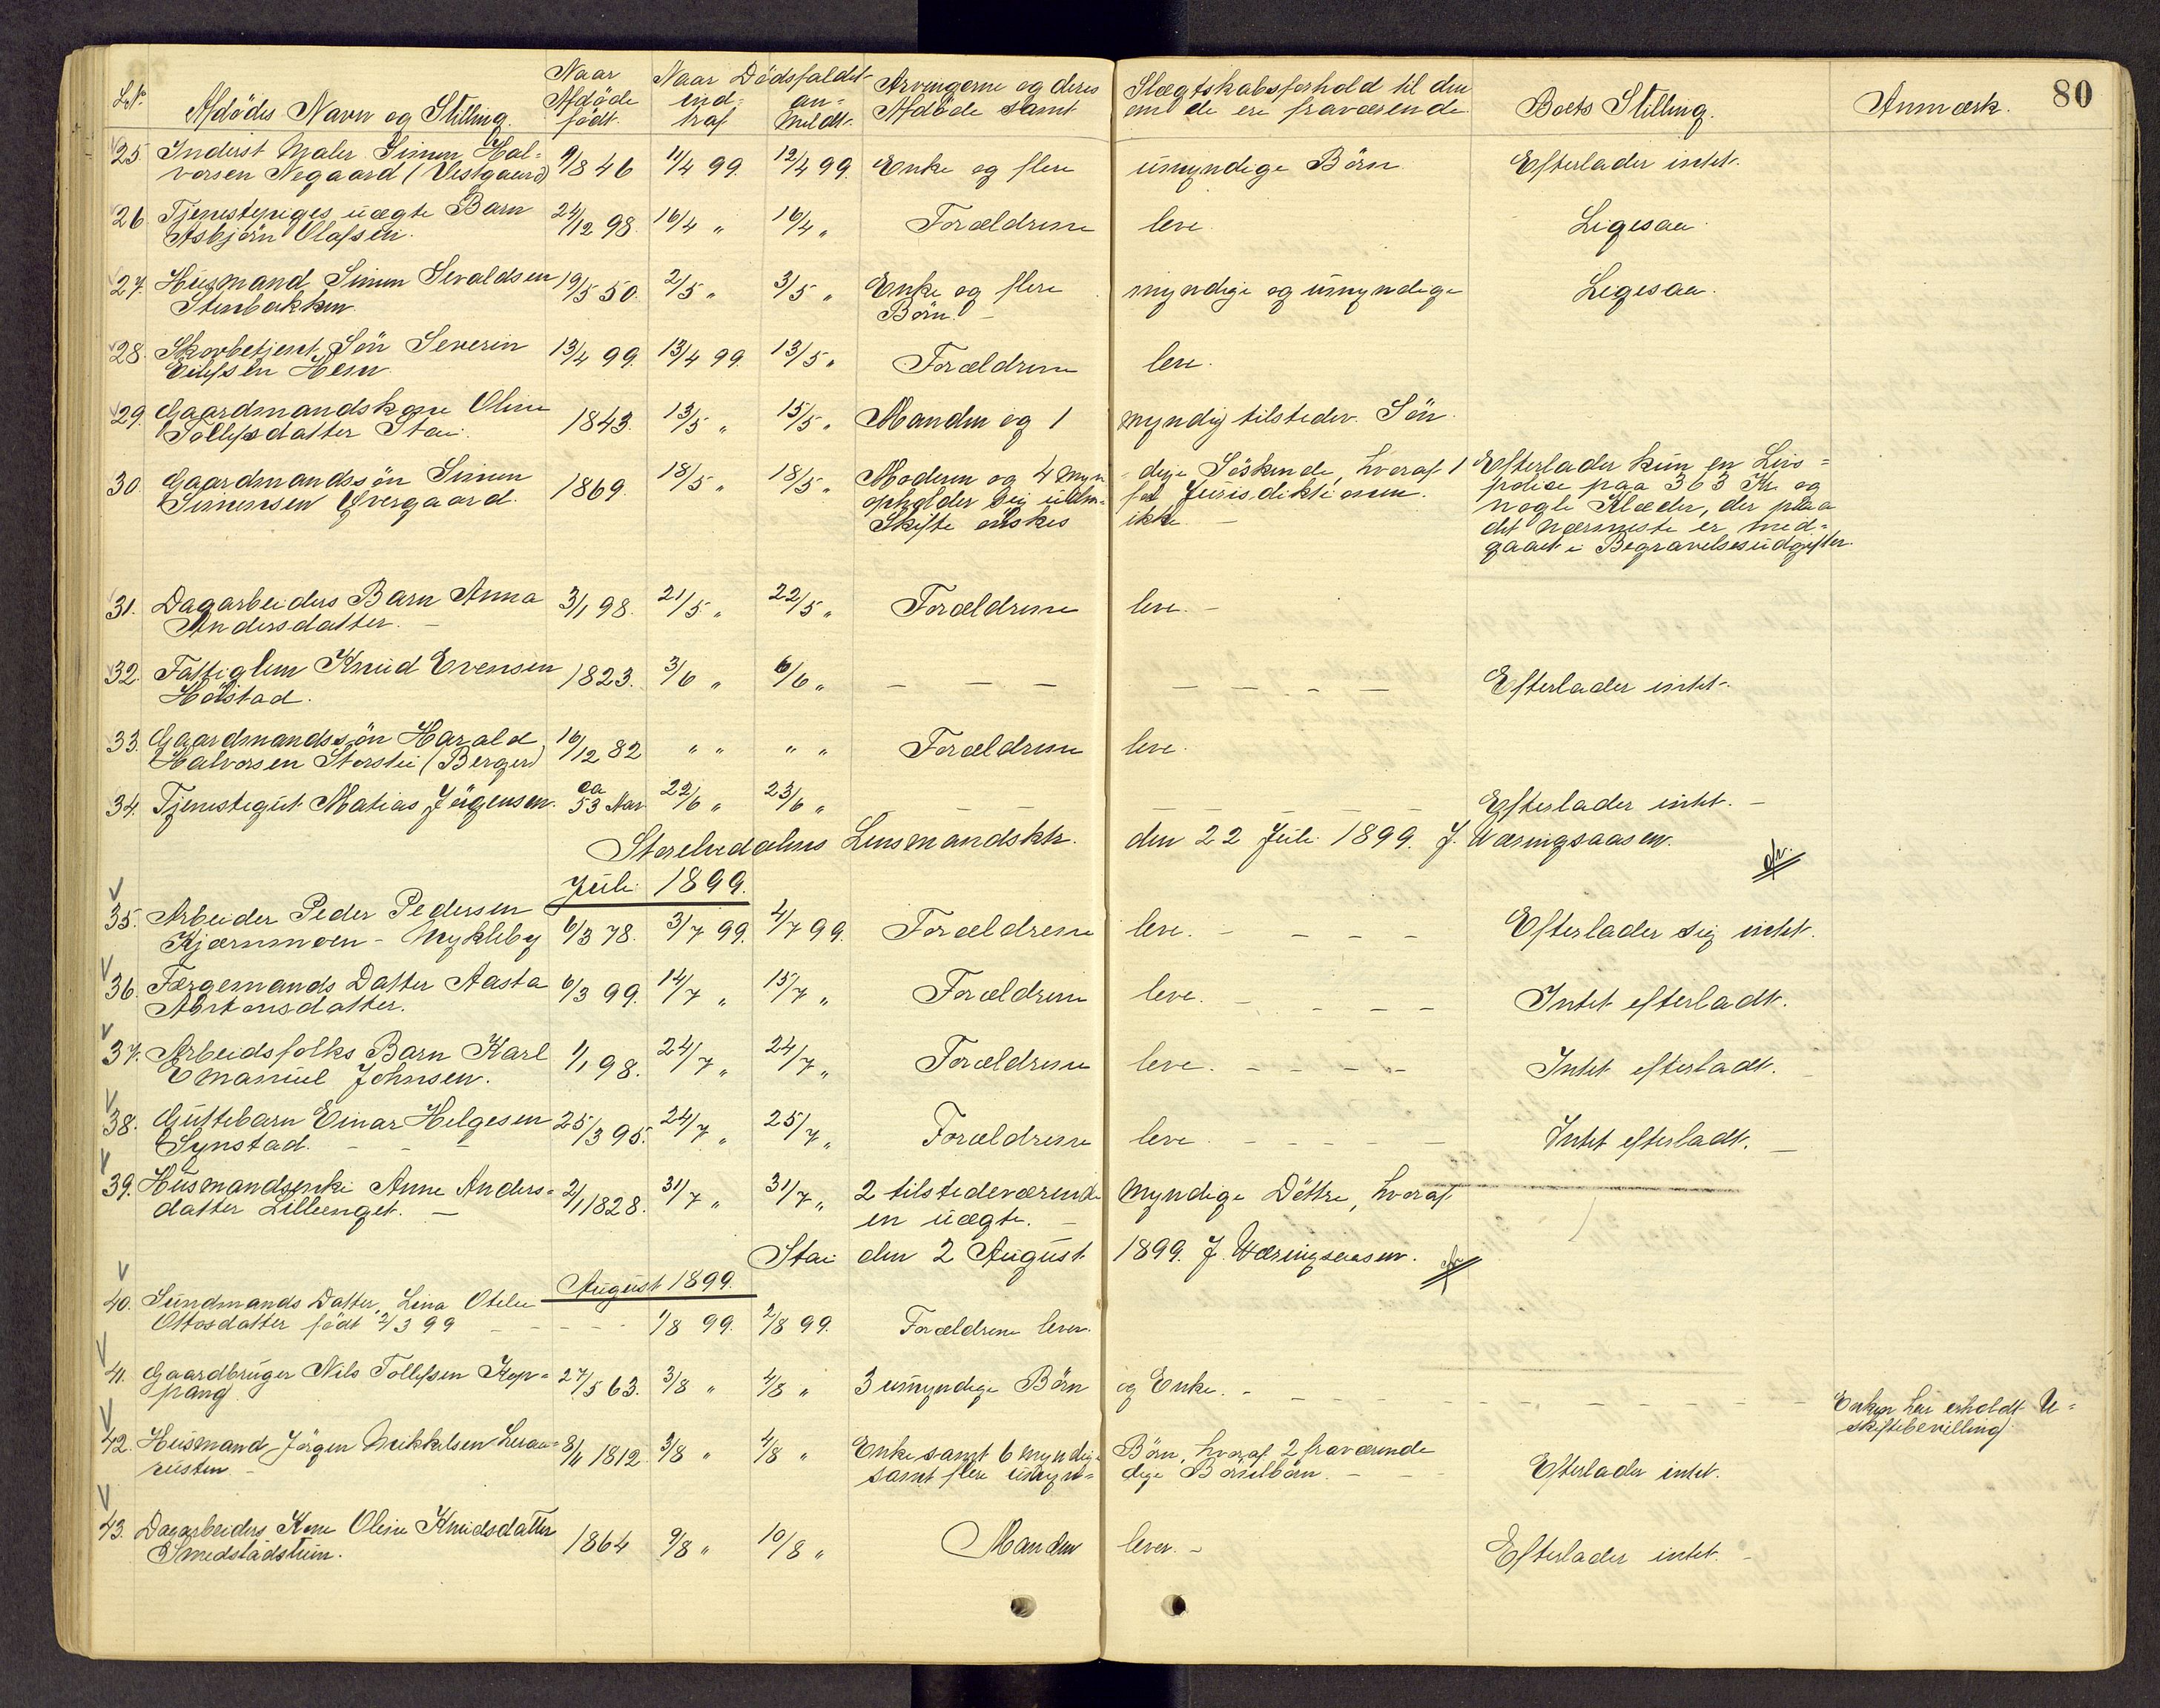 80
L.№ Afdødes Navn og Stilling. Naar Afdöde födt. Naar Dödsfaldet ind-traf. an-meldt. Arvingerne og deres Slægtskabsforhold til den Afdöde samt om de ere fraværende Boets Stilling. Anmærk.
25. Inderst Maler Simen Hal- 9/8 46 11/4 99. 12/4 99. Enke og flere umyndige Börn. Efterlader intet.
vorsen Negaard (Vestgaard)
26. Tjenestepiges uægte Barn 24/12 98. 16/4 „ 16/4 „ Forældrene leve. Ligesaa.
Asbjörn Olafsen.
27. Husmand Simen Sevaldsen 19/5 50. 2/5 „ 3/5 „ Enke og flere myndige og umyndige Ligesaa.
Stenbakken. Börn. –
28. Skovbetjent Sön Severin 13/4 99. 13/4 99. 13/5 „ Forældrene leve.
Eilefsen Hem
29. Gaardmandskone Oline 1843. 13/5 „ 15/5 „ Manden og 1 myndig tilstedev. Sön.
Tollefsdatter Stai.
30. Gaardmandssön Simen 1869. 18/5 „ 18/5 „ Moderen og 4 myn- dige Söskende, hvoraf 1 Efterlader kun en Livs=
Simensen Övergaard. opholder sig uden- for Jurisdiktionen. police paa 363 Kr og
Skifte önskes ikke – nogle Klæder, der paa
det nærmeste er med-
gaaet i Begravelsesudgifter.
31. Dagarbeiders Barn Anna 3/1 98. 21/5 „ 22/5 „ Forældrene leve. –
Andersdatter. –
32. Fattiglem Knud Evensen 1823. 3/6 „ 6/6 „ – – – – – – – Efterlader intet.
Hovstad.
33. Gaardmandssön Harald 16/12 82 „ „ „ „ Forældrene leve.
Halvorsen Storstu (Berger)
34. Tjenestegut Matias Jörgensen. ca 53 Aar 22/6 „ 23/6 „ – – – – – – – Efterlader intet. –
Storelvedalens Lensmandsktr. den 22 Juli 1899. J. Wæringsaasen.
Juli 1899.
35. Arbeider Peder Pedersen 6/3 78. 3/7 99. 4/7 99. Forældrene leve. – – – – Efterlader sig intet.
Kjærnmoen – Mykleby
36. Færgemands Datter Aasta 6/3 99. 14/7 „ 15/7 „ Forældrene leve. – – – – Intet efterladt.
Mortensdatter.
37. Arbeidsfolks Barn Karl 1/1 98. 24/7 „ 24/7 „ Forældrene leve. – – – – Intet efterladt.
Emanuel Johnsen.
38. Guttebarn Einar Helgesen 25/3 95. 24/7 „ 25/7 „ Forældrene leve. – – – – Intet efterladt. –
Synstad. – – –
39. Husmandsenke Anne Anders- 2/1 1828. 31/7 „ 31/7 „ 2 tilstedeværende myndige Döttre, hvoraf
datter Lilleenget. – en uægte. –
Stai den 2 August 1899. J. Wæringsaasen.
August 1899.
40. Sundmands Datter, Lina Otelie
Ottosdatter födt 2/3 99 – – – – 1/8 99. 2/8 99. Forældrene lever.
41. Gaardbruger Nils Tollefsen Kop- 27/5 63. 3/8 „ 4/8 „ 3 umyndige Börn og Enke. – – – – – – Enken har erholdt U-
pang skiftebevilling.
42. Husmand Jörgen Mikkelsen 8/11 1812. 3/8 „ 4/8 „ Enke samt 6 myndige Börn, hvoraf 2 fraværende
rusten – samt flere umyn- dige Börnebörn. – – Efterlader intet.
43. Dagarbeiders Kone Oline Knudsdatter 1864 9/8 „ 10/8 „ Manden lever. – Efterlader intet. –
Smedstadstuen.